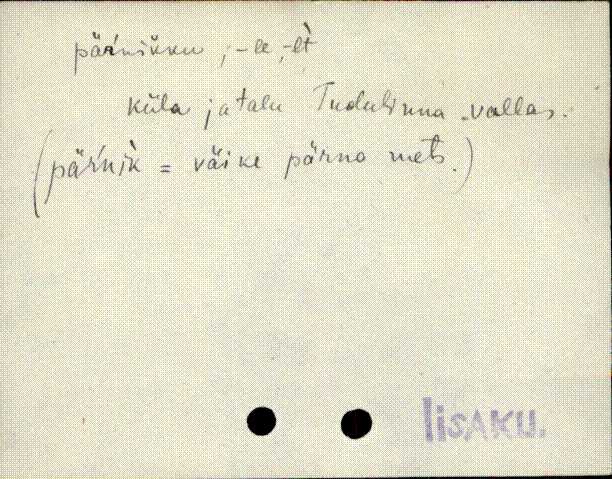 pär̀nikku, -le, -lt̀
küla ja talu Tudulinna vallas.
(pär̀nik̀ = väike pärna mets.)
IisAKU.